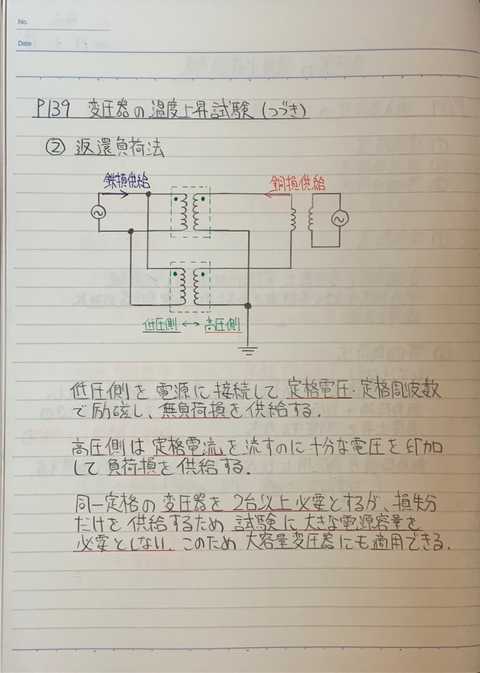 No.
Date
P139 変圧器の温度上昇試験(つづき)
② 返還負荷法
鉄損供給
銅損供給
低圧側 ↔ 高圧側
低圧側を電源に接続して定格電圧・定格周波数
で励磁し、無負荷損を供給する.
高圧側は定格電流を流すのに十分な電圧を印加
して負荷損を供給する.
同一定格の変圧器を2台以上必要とするが、損失分
だけを供給するため試験に大きな電源容量を
必要としない. このため大容量変圧器にも適用できる.